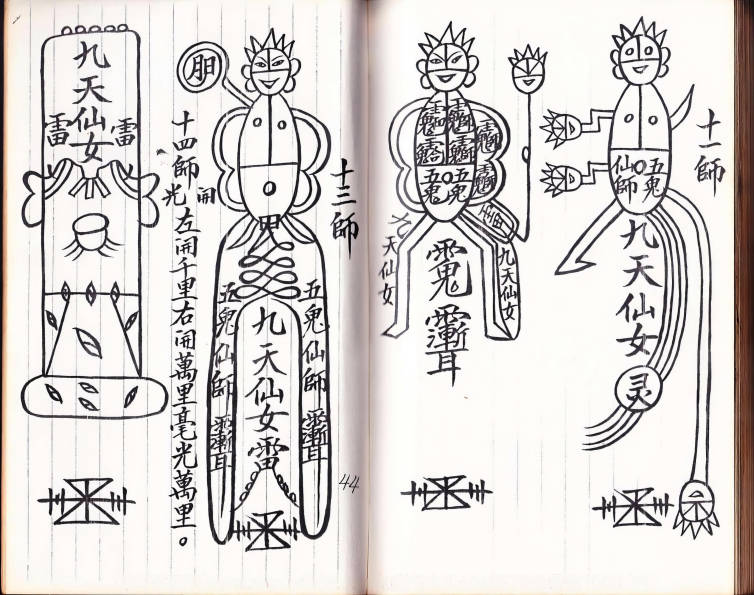 十一師
五鬼
仙師
九天仙女
灵
五鬼
五鬼
雷
九天仙女
九天仙女
十三師
胆
五鬼仙師
五鬼仙師
九天仙女雷
44
十四師
開光
左開千里右開萬里毫光萬里。
九天仙女
雷
雷